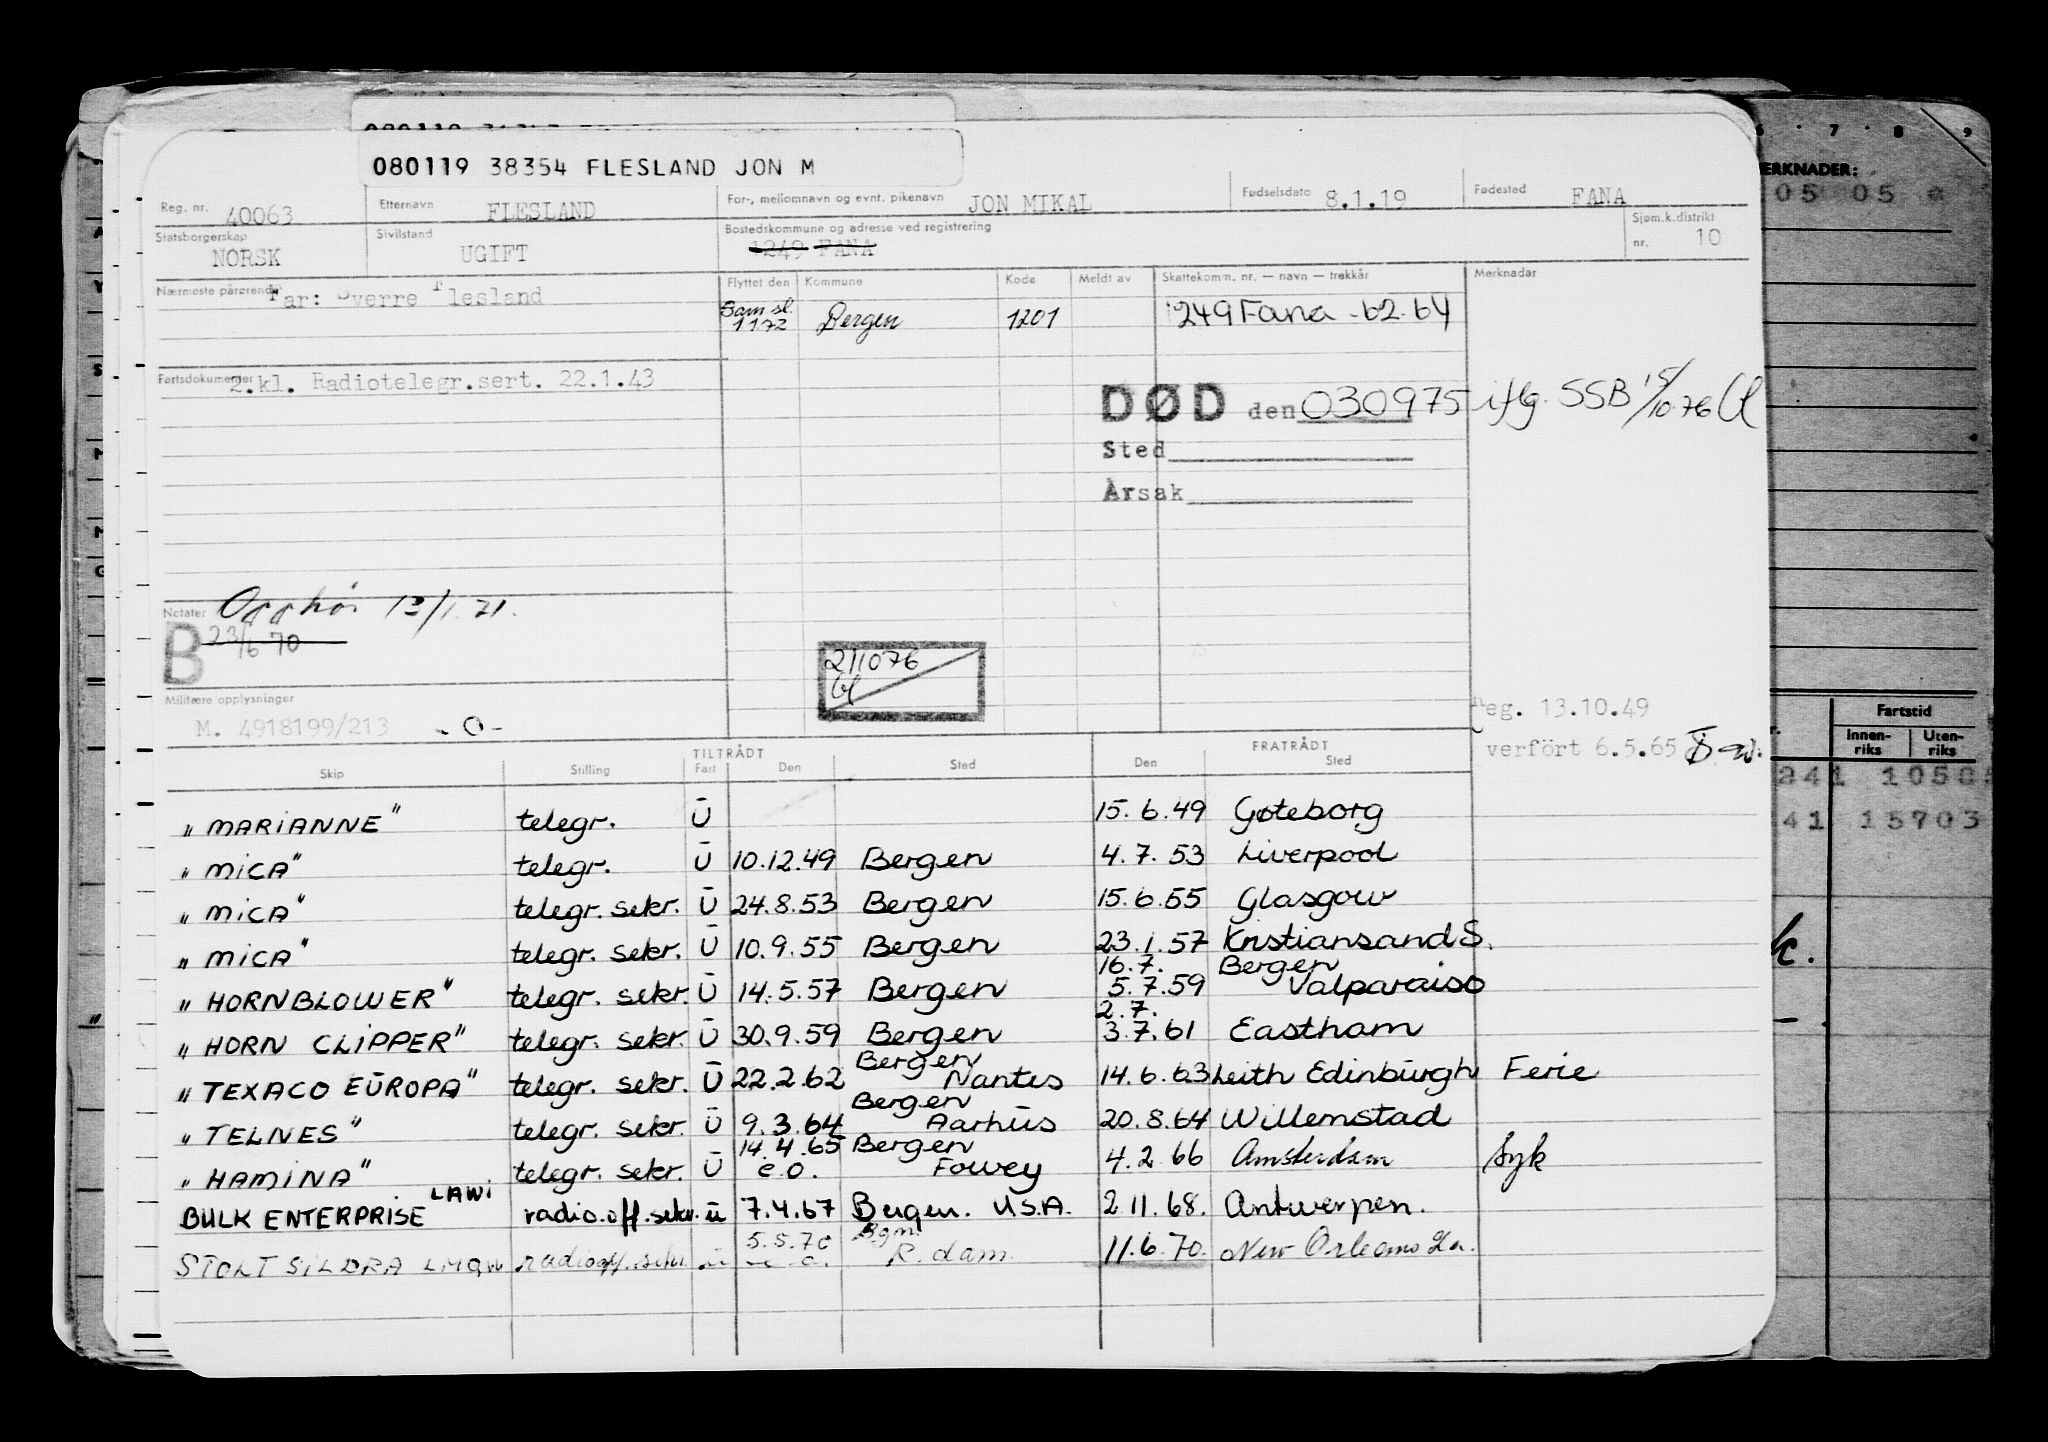 080119 38354 FLESLAND JON M
Reg. nr. 40063 Etternavn FLESLAND For-, mellomnavn og evnt. pikenavn JON MIKAL Fødselsdato 8.1.19 Fødested FANA
Statsborgerskap NORSK Sivilstand UGIFT Bostedskommune og adresse ved registrering 1249 FANA Sjøm.k.distrikt nr. 10
Nærmeste pårørende Far: Sverre Flesland
Flyttet den Kommune Kode Meldt av Skattekomm. nr. — navn — trekkår Merknader
Sam sl. 1172 Bergen 1201 1249 Fana - 62.64
Fartsdokumenter 2.kl. Radiotelegr.sert. 22.1.43
DØD den 030975 iflg. SSB 15/10.76
Sted
Årsak
Notater Opphør 12/1.71.
B 23/6 70
211076
Militære opplysninger
M. 4918199/213 -0-
Reg. 13.10.49
verfört 6.5.65
TILTRÅDT FRATRÅDT
Skip Stilling Fart Den Sted Den Sted
"MARIANNE" telegr. U 15.6.49 Gøteborg
"MICA" telegr. U 10.12.49 Bergen 4.7.53 Liverpool
"MICA" telegr. sekr. U 24.8.53 Bergen 15.6.55 Glasgow
"MICA" telegr. sekr. U 10.9.55 Bergen 23.1.57 Kristiansand S.
16.7. Bergen
"HORNBLOWER" telegr. sekr. U 14.5.57 Bergen 5.7.59 Valparaiso
2.7.
"HORN CLIPPER" telegr. sekr. U 30.9.59 Bergen 3.7.61 Eastham
Bergen
"TEXACO EUROPA" telegr. sekr. U 22.2.62 Nantes 14.6.63 Leith Edinburgh Ferie
Bergen
"TELNES" telegr. sekr. U 9.3.64 Aarhus 20.8.64 Willemstad
14.4.65 Bergen
"HAMINA" telegr. sekr. U e.o. Fowey 4.2.66 Amsterdam Syk
BULK ENTERPRISE LAWI radio.off.sekr. u 7.4.67 Bergen. U.S.A. 2.11.68. Antwerpen.
5.5.70 Bgm.
STOLT SILDRA radiooff.sekr. u R.dam. 11.6.70. New Orleans La.
7 8 9
MERKNADER:
05 05
Fartstid
Innen-riks Uten-riks
241 10505
41 15703
k.